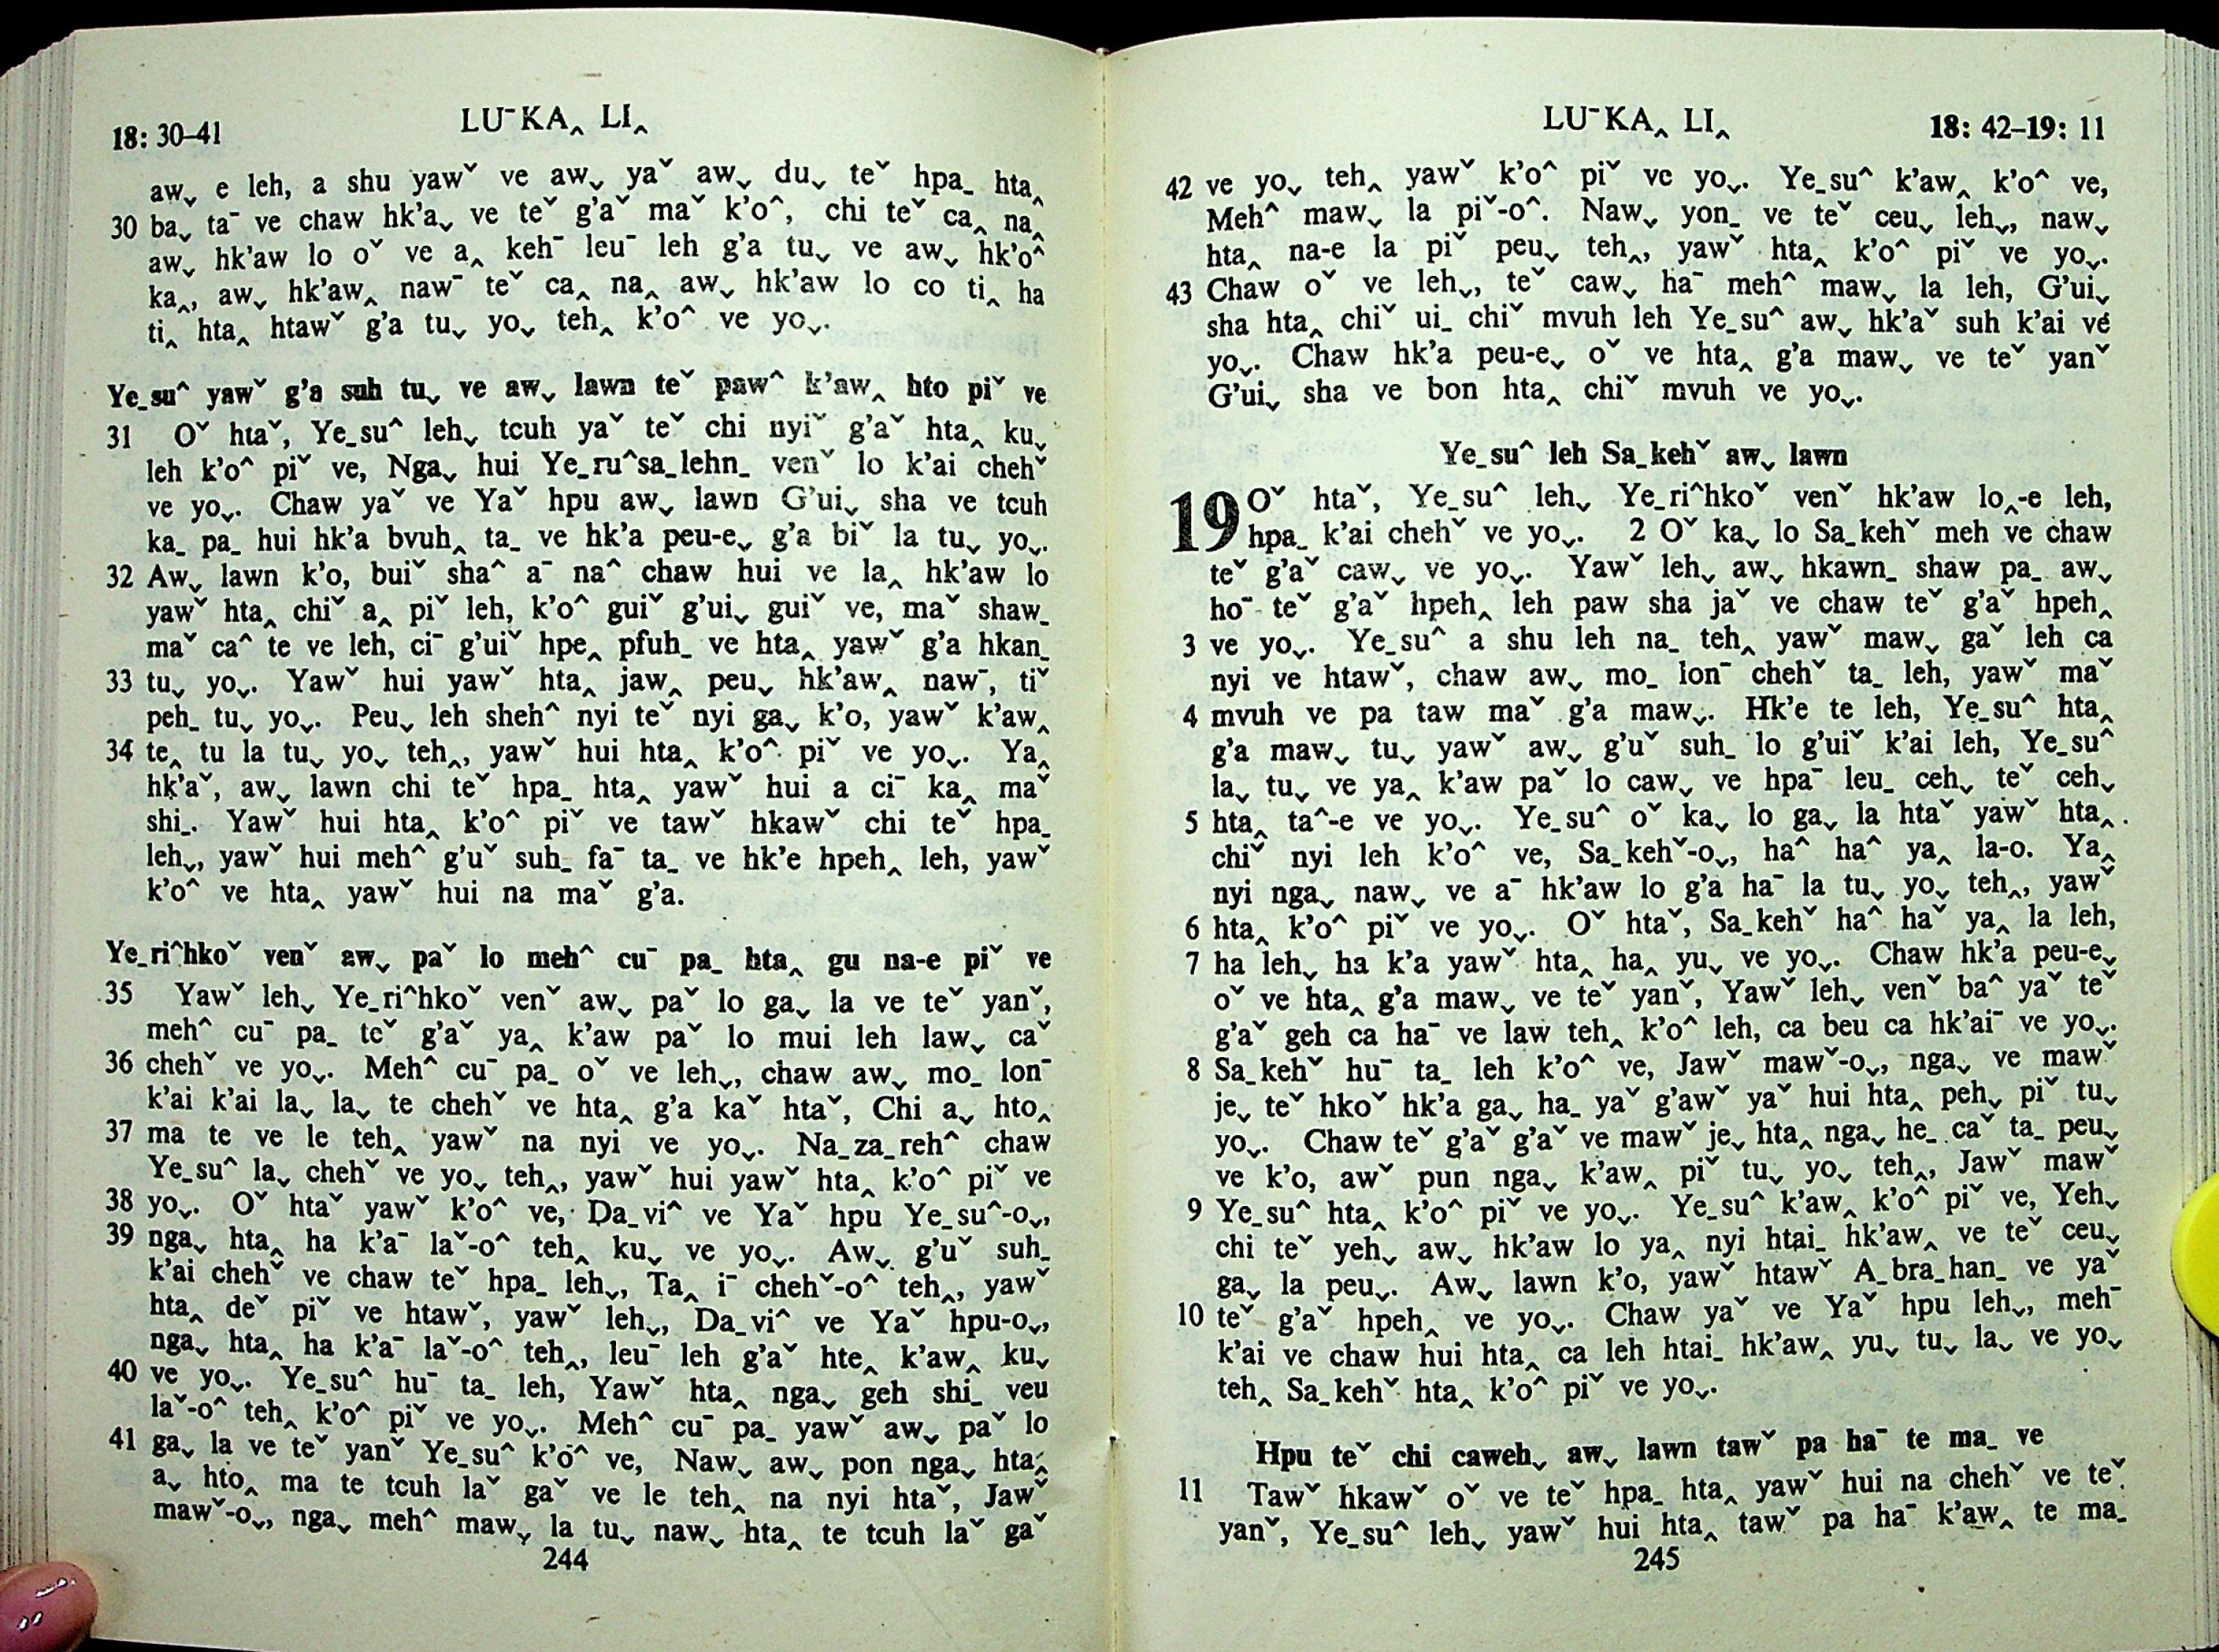 18: 30–41
LUˉKA‸ LI‸
aw˯ e leh, a shu yawˇ ve aw˯ yaˇ aw˯ du˯ teˇ hpa_ hta‸
30 ba˯ taˉ ve chaw hk'a˯ ve teˇ g'aˇ maˇ k'o^, chi teˇ ca‸ na‸
aw˯ hk'aw lo oˇ ve a‸ kehˉ leuˉ leh g'a tu˯ ve aw˯ hk'o^
ka‸, aw˯ hk'aw‸ nawˉ teˇ ca‸ na‸ aw˯ hk'aw lo co ti‸ ha
ti‸ hta‸ htawˇ g'a tu˯ yo˯ teh‸ k'o^ ve yo˯.
Ye_su^ yawˇ g'a suh tu˯ ve aw˯ lawn teˇ paw^ k'aw‸ hto piˇ ve
31 Oˇ htaˇ, Ye_su^ leh˯ tcuh yaˇ teˇ chi nyiˇ g'aˇ hta‸ ku˯
leh k'o^ piˇ ve, Nga˯ hui Ye_ru^sa_lehn_ venˇ lo k'ai chehˇ
ve yo˯. Chaw yaˇ ve Yaˇ hpu aw˯ lawn G'ui˯ sha ve tcuh
ka_ pa_ hui hk'a bvuh‸ ta_ ve hk'a peu-e˯ g'a biˇ la tu˯ yo˯.
32 Aw˯ lawn k'o, buiˇ sha^ aˉ na^ chaw hui ve la‸ hk'aw lo
yawˇ hta‸ chiˇ a‸ piˇ leh, k'o^ guiˇ g'ui˯ guiˇ ve, maˇ shaw_
maˇ ca^ te ve leh, ciˉ g'uiˇ hpe‸ pfuh_ ve hta‸ yawˇ g'a hkan_
33 tu˯ yo˯. Yawˇ hui yawˇ hta‸ jaw‸ peu˯ hk'aw‸ nawˉ, tiˇ
peh_ tu˯ yo˯. Peu˯ leh sheh^ nyi teˇ nyi ga˯ k'o, yawˇ k'aw‸
34 te‸ tu la tu˯ yo˯ teh‸, yawˇ hui hta‸ k'o^ piˇ ve yo˯. Ya‸
hk'aˇ, aw˯ lawn chi teˇ hpa_ hta‸ yawˇ hui a ciˉ ka‸ maˇ
shi_. Yawˇ hui hta‸ k'o^ piˇ ve tawˇ hkawˇ chi teˇ hpa_
leh˯, yawˇ hui meh^ g'uˇ suh_ faˉ ta_ ve hk'e hpeh‸ leh, yawˇ
k'o^ ve hta‸ yawˇ hui na maˇ g'a.
Ye_ri^hkoˇ venˇ aw˯ paˇ lo meh^ cuˉ pa_ hta‸ gu na-e piˇ ve
35 Yawˇ leh˯ Ye_ri^hkoˇ venˇ aw˯ paˇ lo ga˯ la ve teˇ yanˇ,
meh^ cuˉ pa_ teˇ g'aˇ ya‸ k'aw paˇ lo mui leh law˯ caˇ
36 chehˇ ve yo˯. Meh^ cuˉ pa_ oˇ ve leh˯, chaw aw˯ mo_ lonˉ
k'ai k'ai la˯ la˯ te chehˇ ve hta‸ g'a kaˇ htaˇ, Chi a˯ hto‸
37 ma te ve le teh‸ yawˇ na nyi ve yo˯. Na_za_reh^ chaw
Ye_su^ la˯ chehˇ ve yo˯ teh‸, yawˇ hui yawˇ hta‸ k'o^ piˇ ve
38 yo˯. Oˇ htaˇ yawˇ k'o^ ve, Da_vi^ ve Yaˇ hpu Ye_su^-o˯,
39 nga˯ hta‸ ha k'aˉ laˇ-o^ teh‸ ku˯ ve yo˯. Aw˯ g'uˇ suh_
k'ai chehˇ ve chaw teˇ hpa_ leh˯, Ta‸ iˉ chehˇ-o^ teh‸, yawˇ
hta‸ deˇ piˇ ve htawˇ, yawˇ leh˯, Da_vi^ ve Yaˇ hpu-o˯,
nga˯ hta‸ ha k'aˉ laˇ-o^ teh‸, leuˉ leh g'aˇ hte‸ k'aw‸ ku˯
40 ve yo˯. Ye_su^ huˉ ta_ leh, Yawˇ hta‸ nga˯ geh shi_ veu
laˇ-o^ teh‸ k'o^ piˇ ve yo˯. Meh^ cuˉ pa_ yawˇ aw˯ paˇ lo
41 ga˯ la ve teˇ yanˇ Ye_su^ k'o^ ve, Naw˯ aw˯ pon nga˯ hta‸
a˯ hto‸ ma te tcuh laˇ gaˇ ve le teh‸ na nyi htaˇ, Jawˇ
mawˇ-o˯, nga˯ meh^ maw˯ la tu˯ naw˯ hta‸ te tcuh laˇ gaˇ
244
LUˉKA‸ LI‸
18: 42–19: 11
42 ve yo˯ teh‸ yawˇ k'o^ piˇ ve yo˯. Ye_su^ k'aw‸ k'o^ ve,
Meh^ maw˯ la piˇ-o^. Naw˯ yon_ ve teˇ ceu˯ leh˯, naw˯
hta‸ na-e la piˇ peu˯ teh‸, yawˇ hta‸ k'o^ piˇ ve yo˯.
43 Chaw oˇ ve leh˯, teˇ caw˯ haˉ meh^ maw˯ la leh, G'ui˯
sha hta‸ chiˇ ui_ chiˇ mvuh leh Ye_su^ aw˯ hk'aˇ suh k'ai ve
yo˯. Chaw hk'a peu-e˯ oˇ ve hta‸ g'a maw˯ ve teˇ yanˇ
G'ui˯ sha ve bon hta‸ chiˇ mvuh ve yo˯.
Ye_su^ leh Sa_kehˇ aw˯ lawn
19 Oˇ htaˇ, Ye_su^ leh˯ Ye_ri^hkoˇ venˇ hk'aw lo‸-e leh,
hpa_ k'ai chehˇ ve yo˯. 2 Oˇ ka˯ lo Sa_kehˇ meh ve chaw
teˇ g'aˇ caw˯ ve yo˯. Yawˇ leh˯ aw˯ hkawn_ shaw pa_ aw˯
hoˉ teˇ g'aˇ hpeh‸ leh paw sha jaˇ ve chaw teˇ g'aˇ hpeh‸
3 ve yo˯. Ye_su^ a shu leh na_ teh‸ yawˇ maw˯ gaˇ leh ca
nyi ve htawˇ, chaw aw˯ mo_ lonˉ chehˇ ta_ leh, yawˇ maˇ
4 mvuh ve pa taw maˇ g'a maw˯. Hk'e te leh, Ye_su^ hta‸
g'a maw˯ tu˯ yawˇ aw˯ g'uˇ suh_ lo g'uiˇ k'ai leh, Ye_su^
la˯ tu˯ ve ya‸ k'aw paˇ lo caw˯ ve hpaˉ leu_ ceh˯ teˇ ceh˯
5 hta‸ ta^-e ve yo˯. Ye_su^ oˇ ka˯ lo ga˯ la htaˇ yawˇ hta‸
chiˇ nyi leh k'o^ ve, Sa_kehˇ-o˯, ha^ ha^ ya‸ la-o. Ya‸
nyi nga˯ naw˯ ve aˉ hk'aw lo g'a haˉ la tu˯ yo˯ teh‸, yawˇ
6 hta‸ k'o^ piˇ ve yo˯. Oˇ htaˇ, Sa_kehˇ ha^ haˇ ya‸ la leh,
7 ha leh˯ ha k'a yawˇ hta‸ ha‸ yu˯ ve yo˯. Chaw hk'a peu-e˯
oˇ ve hta‸ g'a maw˯ ve teˇ yanˇ, Yawˇ leh˯ venˇ ba^ yaˇ teˇ
g'aˇ geh ca haˉ ve law teh‸ k'o^ leh, ca beu ca hk'aiˉ ve yo˯.
8 Sa_kehˇ huˉ ta_ leh k'o^ ve, Jawˇ mawˇ-o˯, nga˯ ve mawˇ
je˯ teˇ hkoˇ hk'a ga˯ ha_ yaˇ g'awˇ yaˇ hui hta‸ peh˯ piˇ tu˯
yo˯. Chaw teˇ g'aˇ g'aˇ ve mawˇ je˯ hta‸ nga˯ he_ caˇ ta_ peu˯
ve k'o, awˇ pun nga˯ k'aw‸ piˇ tu˯ yo˯ teh‸, Jawˇ mawˇ
9 Ye_su^ hta‸ k'o^ piˇ ve yo˯. Ye_su^ k'aw‸ k'o^ piˇ ve, Yeh˯
chi teˇ yeh˯ aw˯ hk'aw lo ya‸ nyi htai_ hk'aw‸ ve teˇ ceu˯
ga˯ la peu˯. Aw˯ lawn k'o, yawˇ htawˇ A_bra_han_ ve yaˇ
10 teˇ g'aˇ hpeh‸ ve yo˯. Chaw yaˇ ve Yaˇ hpu leh˯, mehˉ
k'ai ve chaw hui hta‸ ca leh htai_ hk'aw‸ yu˯ tu˯ la˯ ve yo˯
teh‸ Sa_kehˇ hta‸ k'o^ piˇ ve yo˯.
Hpu teˇ chi caweh˯ aw˯ lawn tawˇ pa haˉ te ma_ ve
11 Tawˇ hkawˇ oˇ ve teˇ hpa_ hta‸ yawˇ hui na chehˇ ve teˇ
yanˇ, Ye_su^ leh˯ yawˇ hui hta‸ tawˇ pa haˉ k'aw‸ te ma_
245